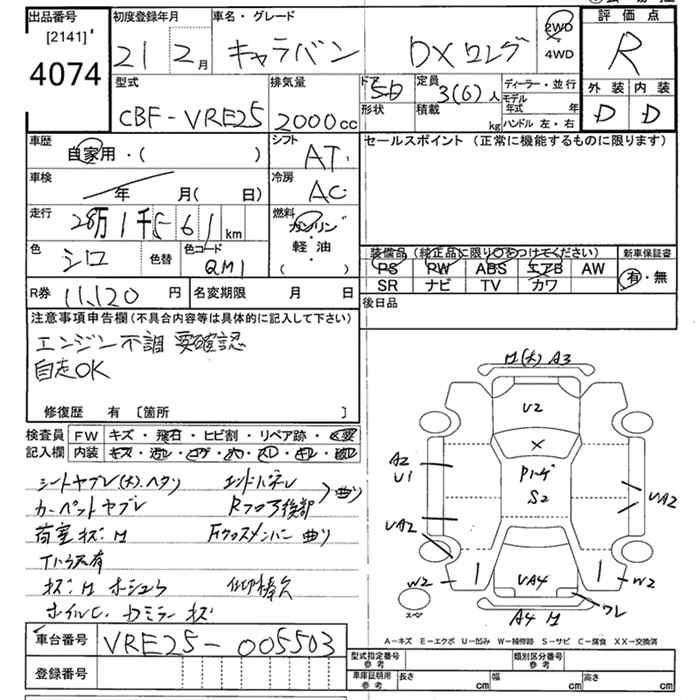 出品番号
[2141]
4074
初度登録年月
21 2月
車名・グレード
キャラバン DXロング
2WD
4WD
評価点
R
外装 内装
D D
型式
CBF-VRE25
排気量
2000cc
ドア
5D
形状
定員
3(6)人
積載
kg
ディーラー・並行
モデル年式 年
ハンドル 左・右
車歴
自家用・( )
シフト
AT
セールスポイント (正常に機能するものに限ります)
車検
年 月( 日)
冷房
AC
走行
28万1千561km
燃料
ガソリン
軽・油
( )
色
シロ
色替
色コード
QM1
装備品 (純正品に限り○をつけてください)
PS PW ABS エアB AW
SR ナビ TV カワ
新車保証書
有・無
R券 11,120 円
名変期限 月 日
後日品
注意事項申告欄(不具合内容等は具体的に記入して下さい)
エンジン不調 要確認
自走OK
修復歴 有 [箇所 ]
検査員記入欄
FW キズ・飛石・ヒビ割・リペア跡・
内装
シートヤブレ(大).ヘタリ
エンドパネル
カーペットヤブレ
Rフロア後部
曲り
荷室キズ.M
Fクロスメンバー 曲り
下廻り
キズ.M
ホイルC.
ミラーキズ
M(大) A3
U2
A2
U1
S2
UA2
UA2
W2
W2
UA4
ワレ
A4 M
スペア
A-キズ E-エクボ U-凹み W-補修跡 S-サビ C-腐食 XX-交換済
車台番号
VRE25-005503
登録番号
型式指定番号
参考
類別区分番号
参考
車庫証明用
参考
長さ cm
幅 cm
高さ cm